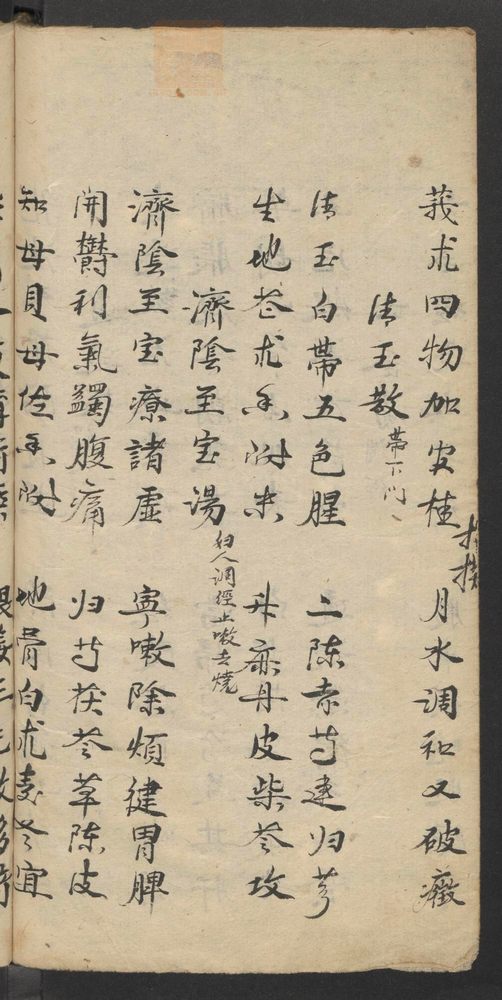 莪朮四物加官桂 月水调和又破癥
清玉散 帯下门
清玉白帯五色腥 二陈赤芍連归芎
生地苍朮香附米 升麻丹皮柴芩攻
濟陰至宝湯 妇人调經止嗽去燒
濟陰至宝療諸虛 寧嗽除煩健胃脾
開欝利氣蠲腹痛 归芍茯苓草陈皮
知母貝母佐香附 地骨白朮麦冬宜